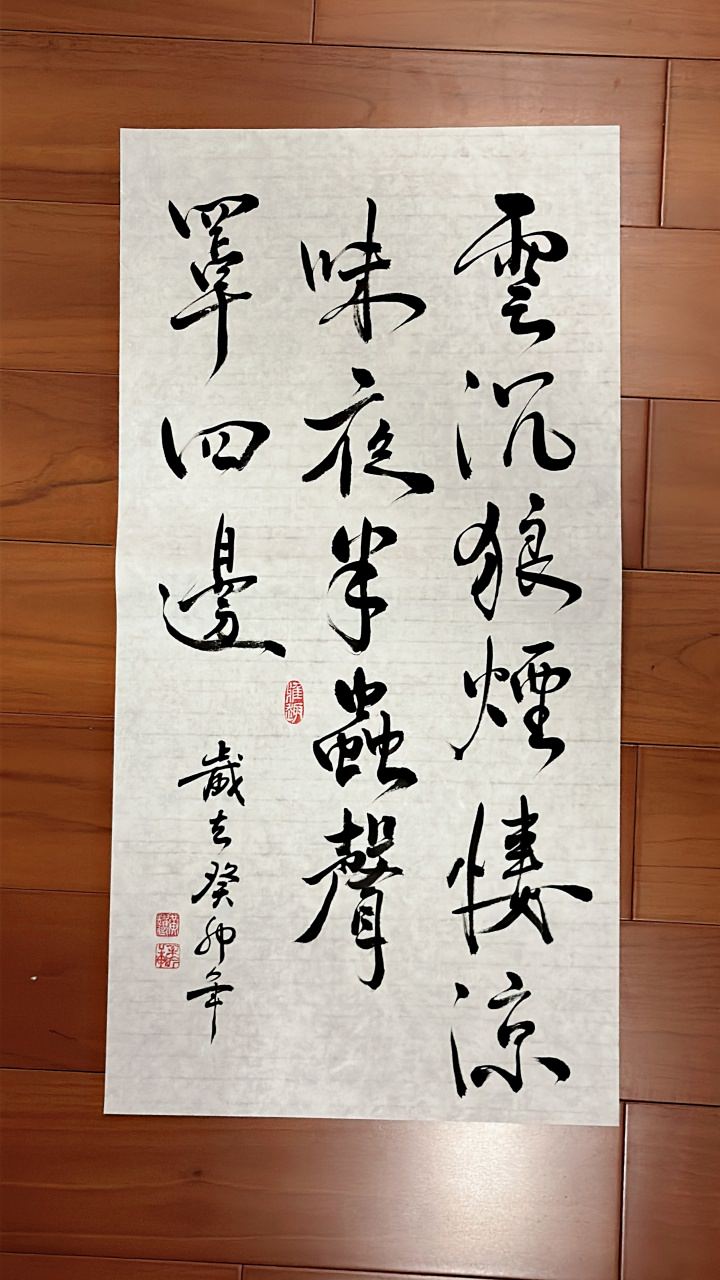 雲沉狼煙悽涼
味夜半蟲聲
罩四邊
歲在癸卯年
雅趣